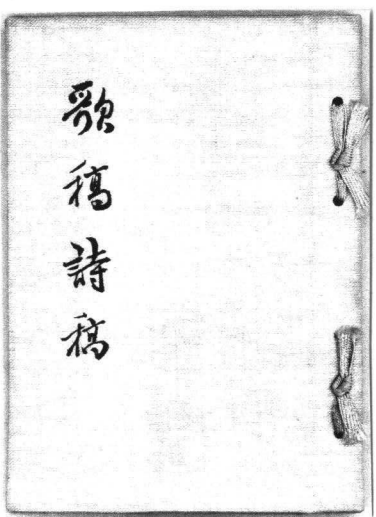 歌稿詩稿